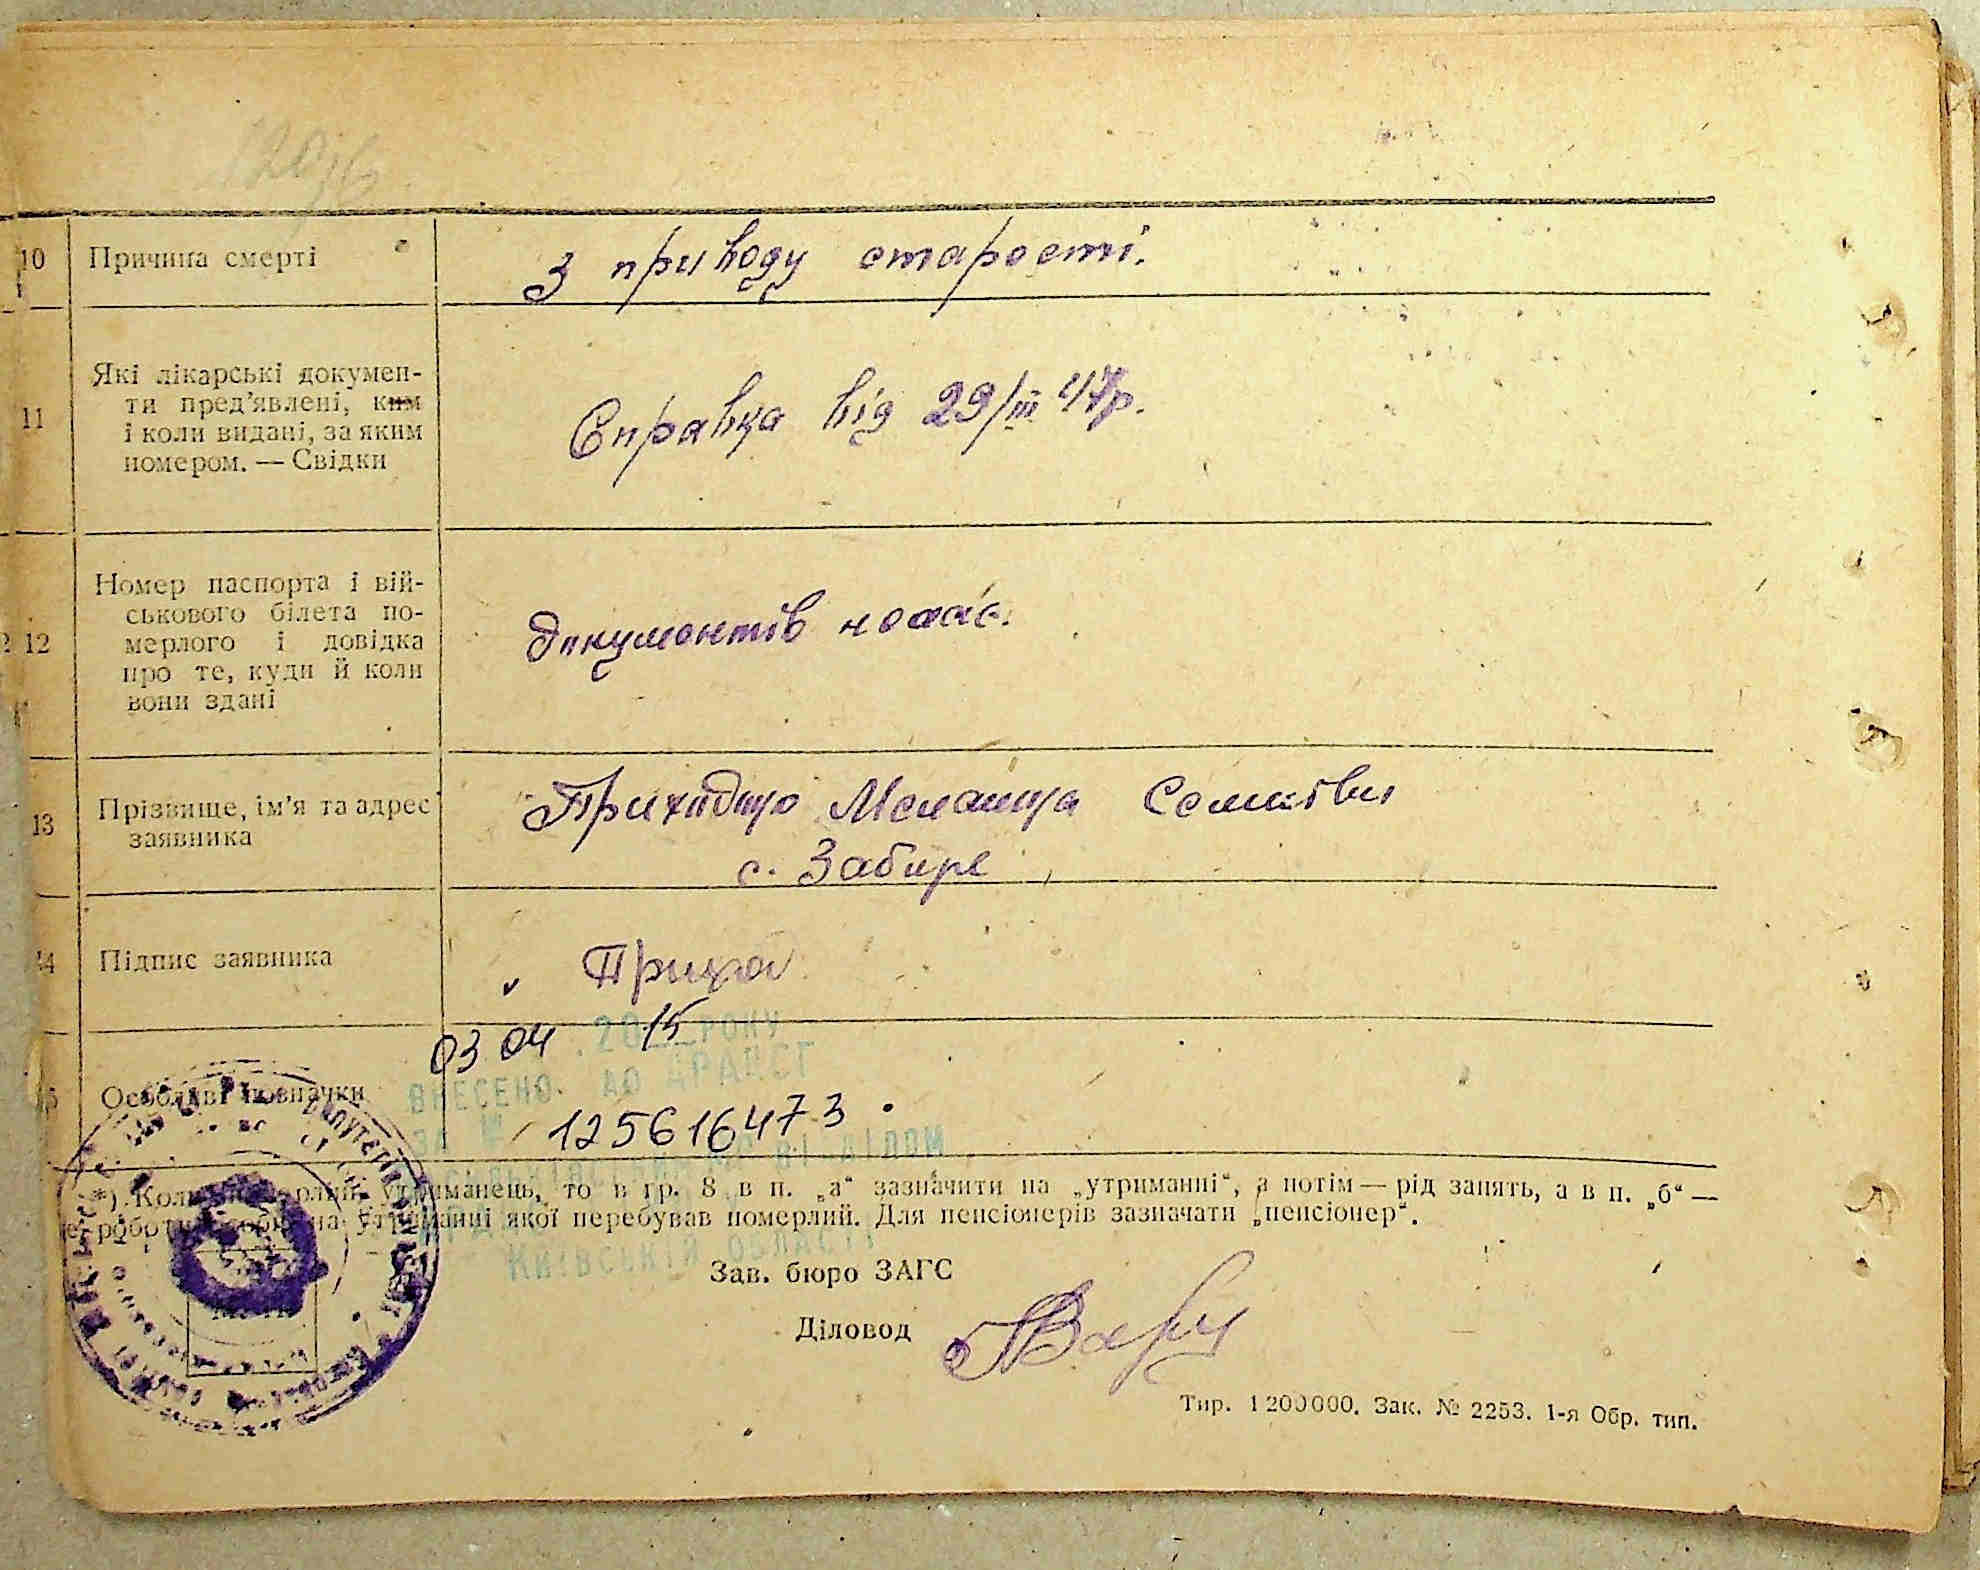 10 Причина смерті
З приводу старости.
11 Які лікарські докумен-
ти пред'явлені, ким
і коли видані, за яким
номером. — Свідки
Справка від 29/III 47р.
12 Номер паспорта і вій-
ськового білета по-
мерлого і довідка
про те, куди й коли
вони здані
Документів немає.
13 Прізвище, ім'я та адрес
заявника
Приходько Меланія
с. Забирє
14 Підпис заявника
Прихо
03 04 2015 РОКУ
ВНЕСЕНО ДО ДРАЦСГ
Особливі позначки
ЗА № 125616473
*) Коли померлий утриманець, то в гр. 8 в п. „а“ зазначити на „утриманні“, а потім — рід занять, а в п. „б“ —
на утриманні якої перебував померлий. Для пенсіонерів зазначати „пенсіонер“.
КИЇВСЬКІЙ ОБЛАСТІ
Зав. бюро ЗАГС
Діловод
Тир. 1200000. Зак. № 2253. 1-я Обр. тип.